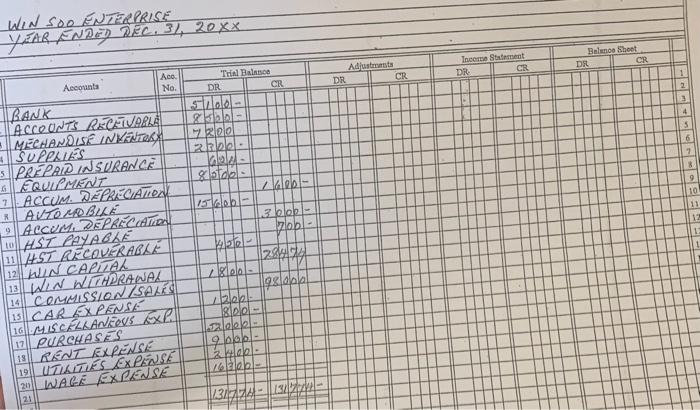 WIN SOO ENTERPRISE
YEAR ENDED DEC. 31, 20XX
Accounts Acc. No. Trial Balance DR CR Adjustments DR CR Income Statement DR CR Balance Sheet DR CR
1 BANK 5100 -
2 ACCOUNTS RECEIVABLE 8500 -
3 MECHANDISE INVENTORY 7200
4 SUPPLIES 2300 -
5 PREPAID INSURANCE 624 -
6 EQUIPMENT 8500 -
7 ACCUM. DEPRECIATION 1600 -
8 AUTOMOBILE 15600 -
9 ACCUM. DEPRECIATION 3000 -
10 HST PAYABLE 700 -
11 HST RECOVERABLE 450 -
12 WIN CAPITAL 28474
13 WIN WITHDRAWAL 1800 -
14 COMMISSION/SALES 98000
15 CAR EXPENSE 1200 -
16 MISCELLANEOUS EXP. 800 -
17 PURCHASES 52000 -
18 RENT EXPENSE 9000 -
19 UTILITIES EXPENSE 2400 -
20 WAGE EXPENSE 16300 -
21 131774 - 131774 -